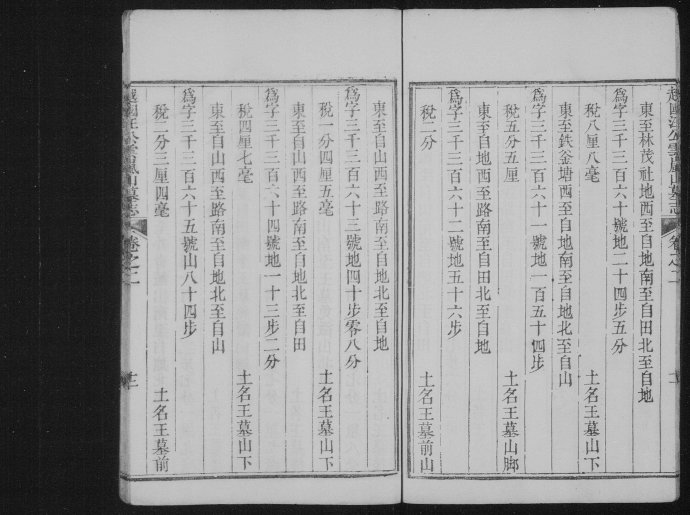 東至林茂社地西至自地南至自田北至自地
爲字三千三百六十號地二十四步五分
稅八厘八毫　土名王墓山下
東至鉄釜塘西至自地南至自地北至自山
爲字三千三百六十一號地一百五十四步
稅五分五厘　土名王墓山脚
東至自地西至路南至自田北至自地
爲字三千三百六十二號地五十六步
稅二分　土名王墓前山
越國汪公雲嵐山墓志　卷之二
東至自山西至路南至自地北至自地
爲字三千三百六十三號地四十步零八分
稅一分四厘五毫　土名王墓山下
東至自山西至路南至自地北至自田
爲字三千三百六十四號地一十三步二分
稅四厘七毫　土名王墓山下
東至自山西至路南至自地北至自山
爲字三千三百六十五號山八十四步
稅二分三厘四毫　土名王墓前
越國汪公雲嵐山墓志　卷之二